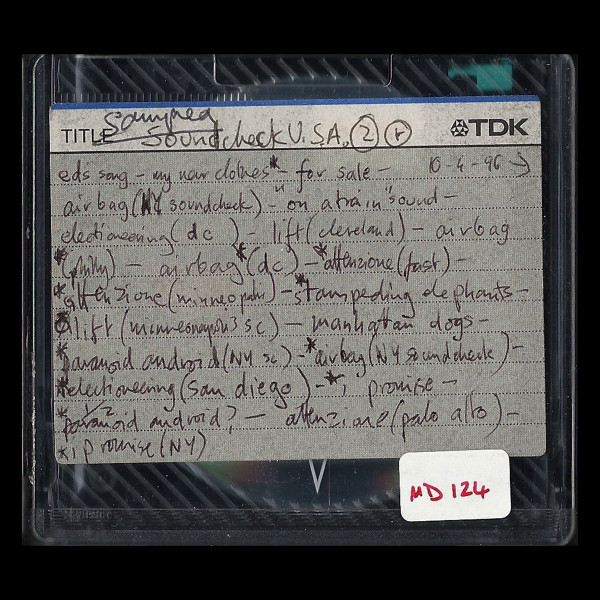 Sampled
TITLE Soundcheck U.S.A. 2 r TDK
eds song – my new clothes* – for sale – 10-4-96 →
airbag (NY soundcheck) – "on a train" sound –
electioneering (dc) – lift (cleveland) – airbag
*(philly) – airbag* (dc) – *attenzione (fast) –
*attenzione (minneapolis) – *stampeding elephants –
lift (minneonapolis sc) – manhattan dogs –
*paranoid android (NY sc) – *airbag (NY soundcheck) –
*electioneering (san diego) – *i promise –
*paranoid android? – attenzione (palo alto) –
*i promise (NY)
MD 124